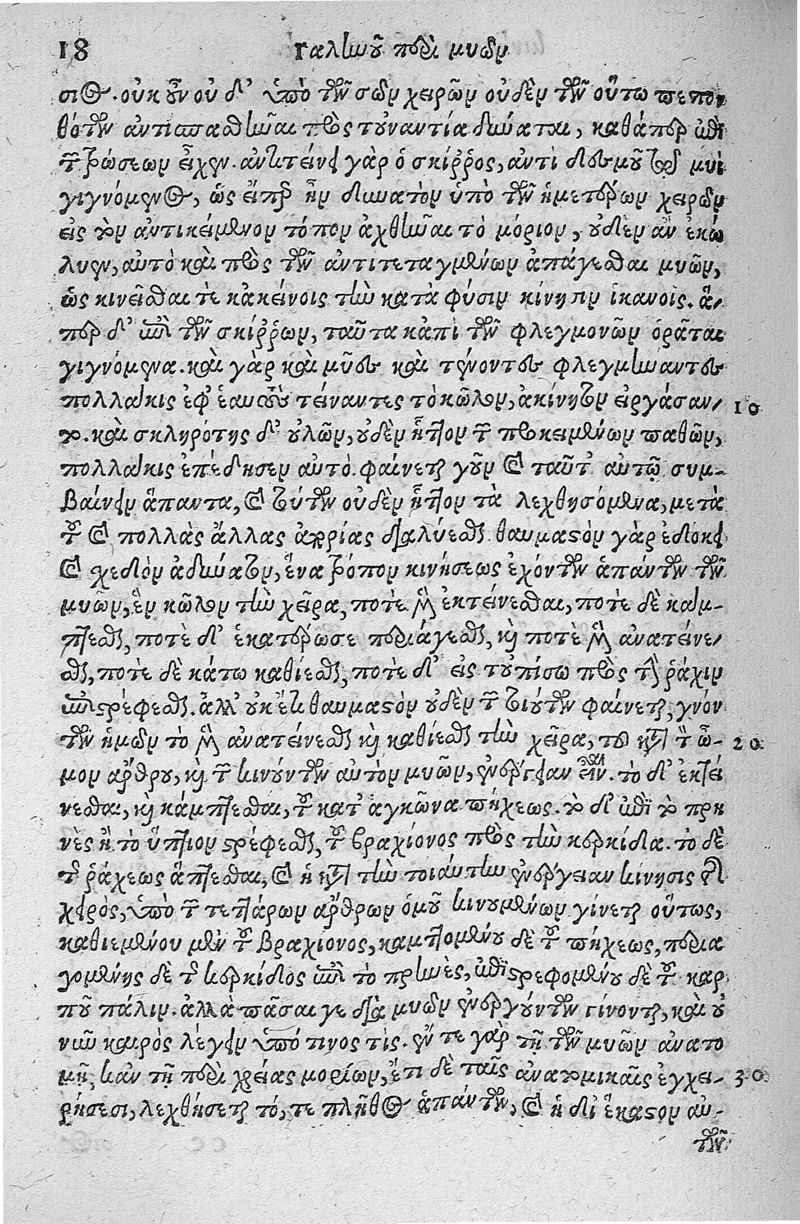 18 Γαληνοῦ περὶ μυῶν
σις. οὐκ οὖν οὐδ' ὑπὸ τῶν σῶν χειρῶν οὐδὲν τῶν οὕτω πεπον
θότων ἀντισπασθῆναι πρὸς τοὐναντία δύναται, καθάπερ ἐπὶ
τρώσεων εἶχεν. ἀντιτείνει γὰρ ὁ σκίῤῥος, ἀντὶ δεσμοῦ τῷ μυὶ
γιγνόμενος, ὡς εἴπερ ἦν δυνατὸν ὑπὸ τῶν ἡμετέρων χειρῶν
εἰς τὸν ἀντικείμενον τόπον ἀχθῆναι τὸ μόριον, οὐδὲν ἂν ἐκώ
λυεν, αὐτὸ καὶ πρὸς τῶν ἀντιτεταγμένων ἀπάγεσθαι μυῶν,
ὡς κινεῖσθαί τε κἀκείνοις τὴν κατὰ φύσιν κίνησιν ἱκανοῖς. ἅ-
περ δ' ἐπὶ τῶν σκίῤῥων, ταῦτα κἀπὶ τῶν φλεγμονῶν ὁρᾶται
γιγνόμενα. καὶ γὰρ καὶ μῦες καὶ τένοντες φλεγμήναντες
πολλάκις ἐφ' ἑαυτοὺς τείναντες τὸ κῶλον, ἀκίνητον εἰργάσαν- 10
το. καὶ σκληρότης δ' οὐλῶν, οὐδὲν ἧττον τῶν προκειμένων παθῶν,
πολλάκις ἐπέδησεν αὐτό. φαίνεται γοῦν καὶ ταῦτ' αὐτῷ συμ-
βαίνειν ἅπαντα, καὶ τούτων οὐδὲν ἧττον τὰ λεχθησόμενα, μετὰ
τοῦ καὶ πολλὰς ἄλλας ἀπορίας διαλύεσθαι. θαυμαστὸν γὰρ ἐδόκει
καὶ σχεδὸν ἀδύνατον, ἕνα τρόπον κινήσεως ἐχόντων ἁπάντων τῶν
μυῶν, ἓν κῶλον τὴν χεῖρα, ποτὲ μὲν ἐκτείνεσθαι, ποτὲ δὲ κάμ-
πτεσθαι, ποτὲ δ' ἑκατέρωσε περιάγεσθαι, καὶ ποτὲ μὲν ἀνατείνε-
σθαι, ποτὲ δὲ κάτω καθίεσθαι, ποτὲ δ' εἰς τοὐπίσω πρὸς τὴν ῥάχιν
ἐπιστρέφεσθαι. ἀλλ' οὐκέτι θαυμαστὸν οὐδὲν τῶν τοιούτων φαίνεται, γνόν
των ἡμῶν τὸ μὲν ἀνατείνεσθαι καὶ καθίεσθαι τὴν χεῖρα, τοῦ κατὰ τὸν ὦ- 20
μον ἄρθρου, καὶ τῶν κινούντων αὐτὸν μυῶν, ἐνέργειαν εἶναι. τὸ δ' ἐκτεί
νεσθαι, καὶ κάμπτεσθαι, τοῦ κατ' ἀγκῶνα πήχεως. τὸ δ' ἐπὶ τὸ πρη
νὲς ἢ τὸ ὕπτιον στρέφεσθαι, τοῦ βραχίονος πρὸς τὴν κερκίδα. τὸ δὲ
τῆς ῥάχεως ἅπτεσθαι, καὶ ἡ κατὰ τὴν τοιαύτην ἐνέργειαν κίνησις τῆς
χειρός, ὑπὸ τῶν τεττάρων ἄρθρων ὁμοῦ κινουμένων γίνεται οὕτως,
καθιεμένου μὲν τοῦ βραχίονος, καμπτομένου δὲ τοῦ πήχεως, περια
γομένης δὲ τῆς κερκίδος ἐπὶ τὸ πρηνὲς, ἐπιστρεφομένου δὲ τοῦ καρ
ποῦ πάλιν. ἀλλὰ πᾶσαί γε διὰ μυῶν ἐνεργούντων γίνονται, καὶ οὐ
νῦν καιρὸς λέγειν ὑπό τινος τίς. ἔν τε γὰρ τῇ τῶν μυῶν ἀνατο
μῇ, κἀν τῇ περὶ χρείας μορίων, ἔτι δὲ ταῖς ἀνατομικαῖς ἐγχει- 30
ρήσεσι, λεχθήσεται τό, τε πλῆθος ἁπάντων, καὶ ἡ δι' ἕκαστον αὐ-
τῶν